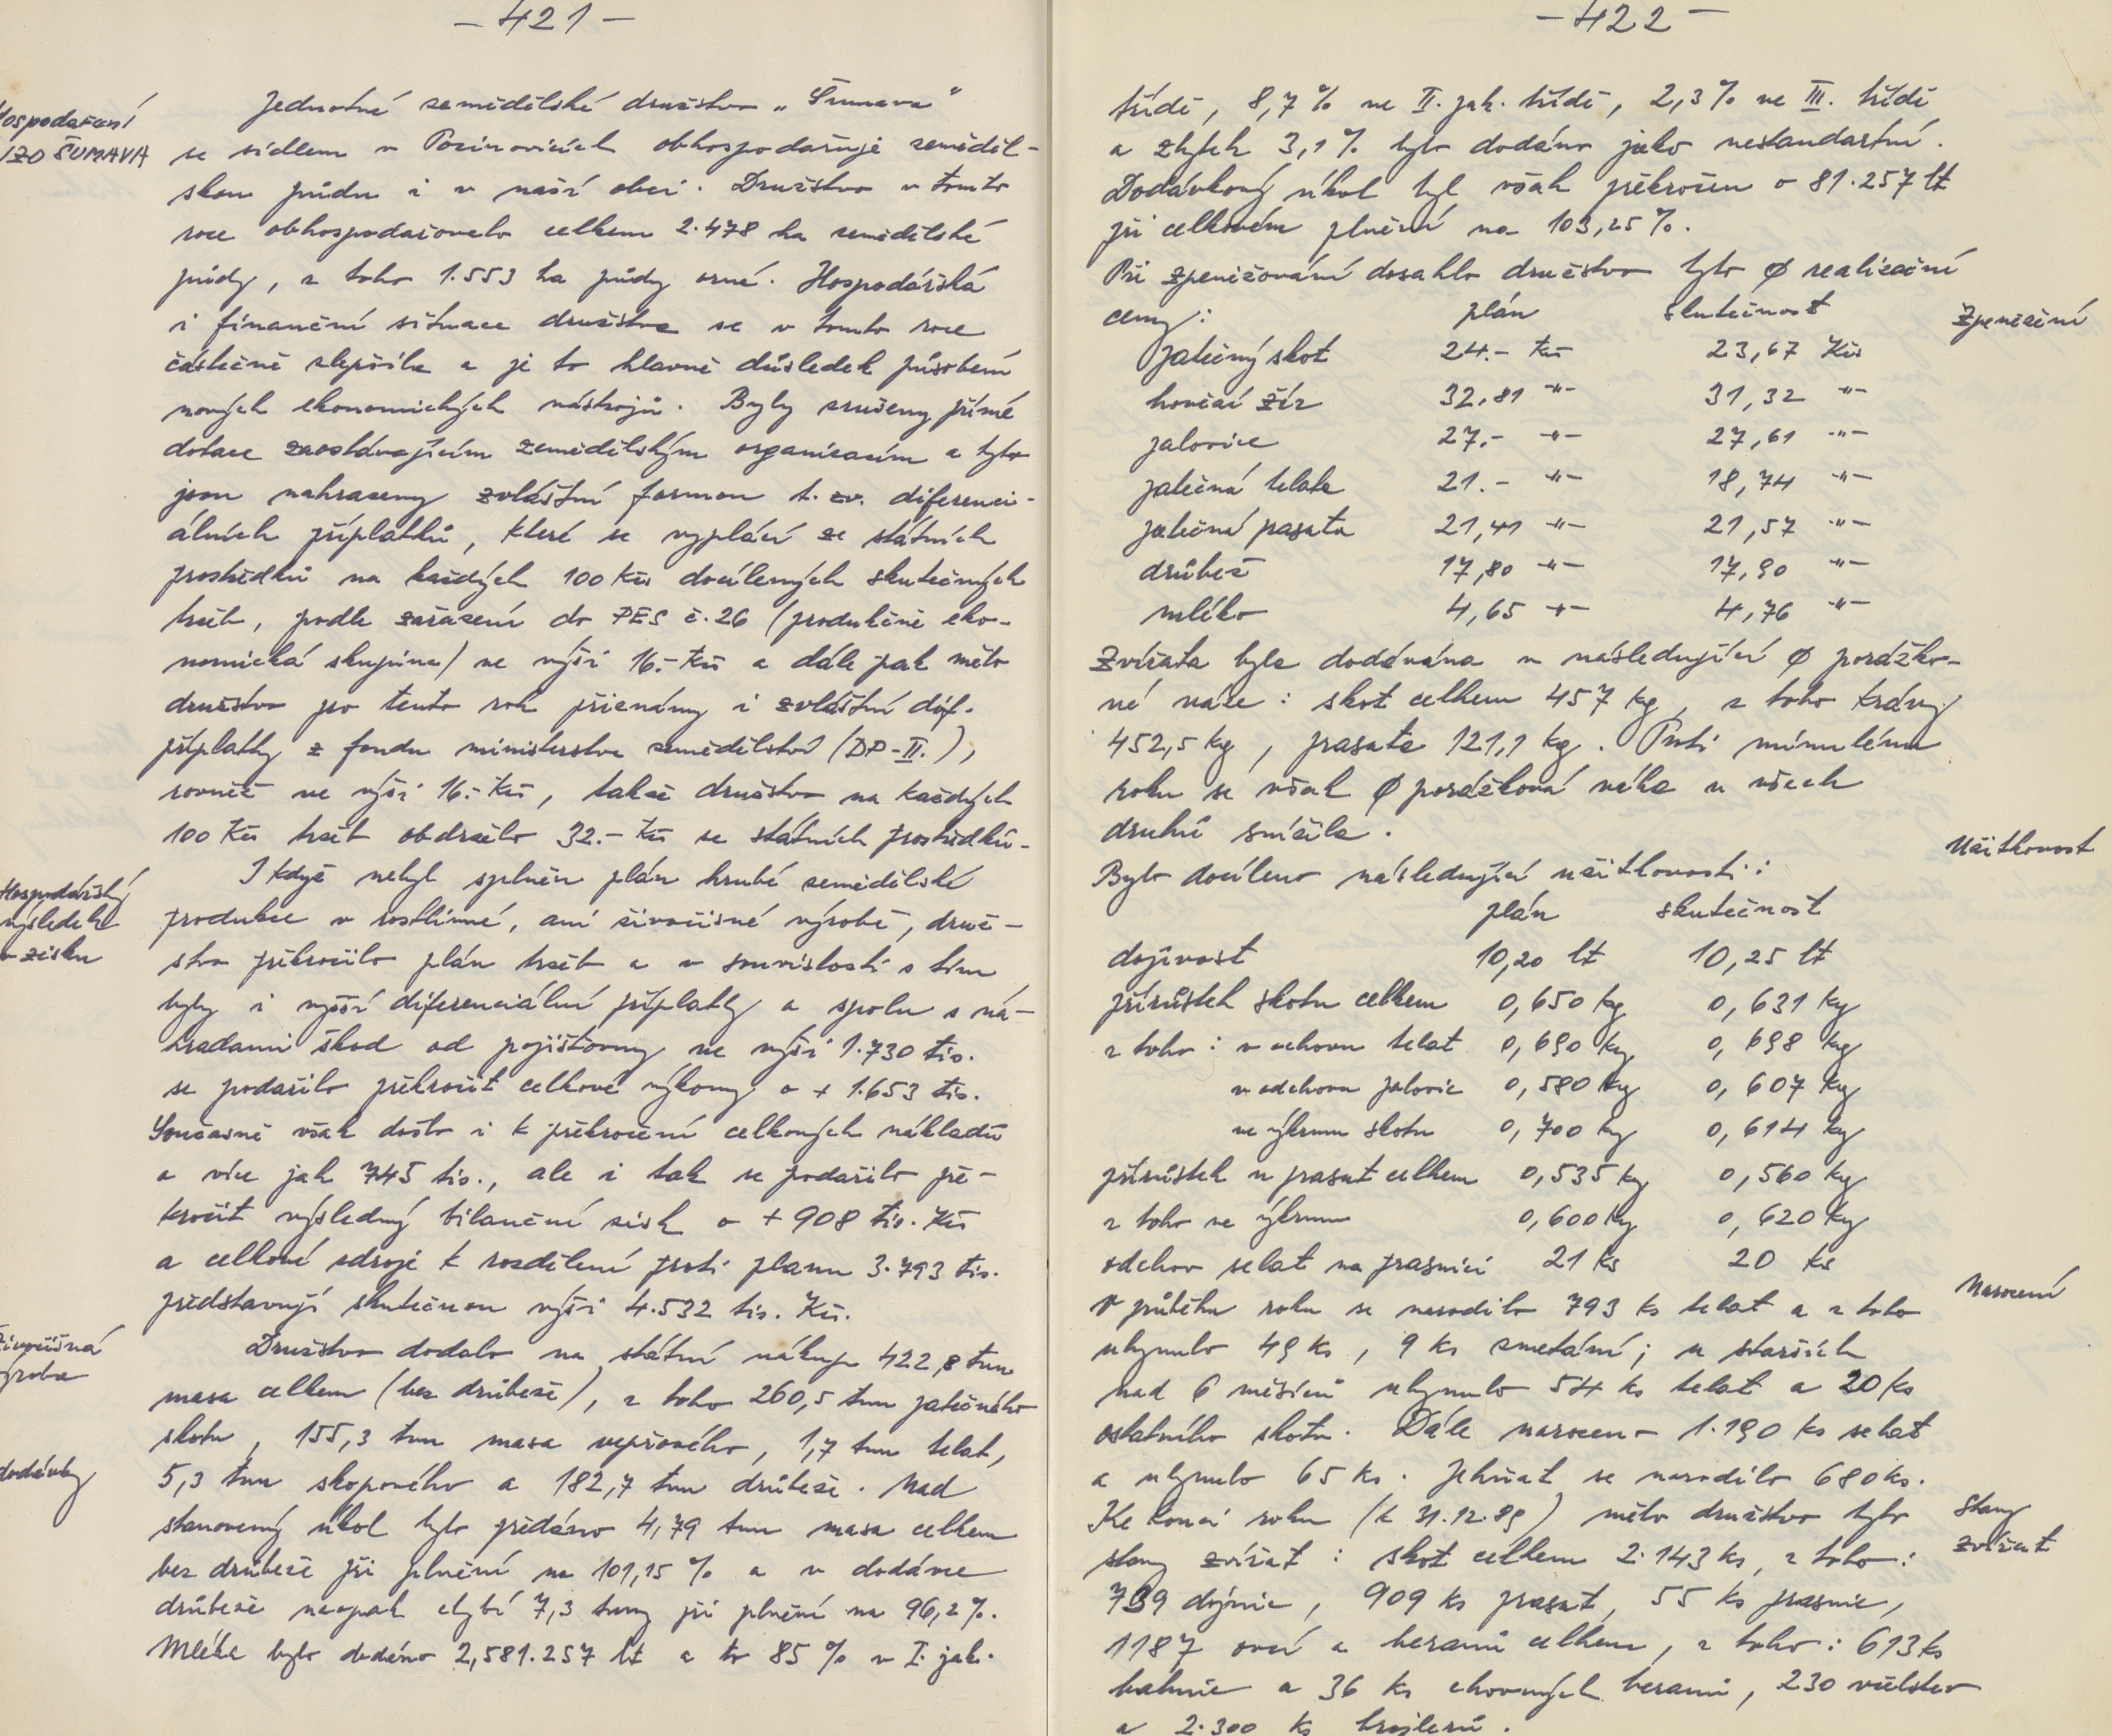 - 421 -
Hospodaření
JZD ŠUMAVA
Jednotné zemědělské družstvo „Šumava“
se sídlem v Pocinovicích obhospodařuje zeměděl-
skou půdu i v naší obci. Družstvo v tomto
roce obhospodařovalo celkem 2.478 ha zemědělské
půdy, z toho 1.553 ha půdy orné. Hospodářská
i finanční situace družstva se v tomto roce
částečně zlepšila a je to hlavně důsledek působení
nových ekonomických nástrojů. Byly zrušeny přímé
dotace zaostávajícím zemědělským organizacím a tyto
jsou nahrazeny zvláštní formou t. zv. diferenci-
álních příplatků, které se vyplácí ze státních
prostředků na každých 100 Kčs docílených skutečných
tržeb, podle zařazení do PES č. 26 (produkčně eko-
nomická skupina) ve výši 16.- Kčs a dále pak mělo
družstvo pro tento rok přiznány i zvláštní dif.
příplatky z fondu ministerstva zemědělství (DP-II.),
rovněž ve výši 16.- Kčs, takže družstvo na každých
100 Kčs tržeb obdrželo 32.- Kčs ze státních prostředků.
Hospodářský
výsledek
v zisku
I když nebyl splněn plán hrubé zemědělské
produkce v rostlinné, ani živočišné výrobě, druž-
stvo překročilo plán tržeb a v souvislosti s tím
byly i vyšší diferenciální příplatky a spolu s ná-
hradami škod od pojišťovny ve výši 1.730 tis.
se podařilo překročit celkové výkony o + 1.653 tis.
Současně však došlo i k překročení celkových nákladů
o více jak 745 tis., ale i tak se podařilo pře-
kročit výsledný bilanční zisk o + 908 tis. Kčs
a celkové zdroje k rozdělení proti plánu 3.793 tis.
představují skutečnou výši 4.532 tis. Kčs.
Živočišná
výroba
Družstvo dodalo na státní nákup 422,8 tun
masa celkem (bez drůbeže), z toho 260,5 tun jatečného
skotu, 155,3 tun masa vepřového, 1,7 tun telat,
dodávky
5,3 tun skopového a 182,7 tun drůbeže. Nad
stanovený úkol bylo předáno 4,79 tun masa celkem
bez drůbeže při plnění na 101,15 % a v dodávce
drůbeže naopak chybí 7,3 tuny při plnění na 96,2 %.
Mléka bylo dodáno 2,581.257 lt a to 85 % v I. jak.
- 422 -
třídě, 8,7 % ve II. jak. třídě, 2,3 % ve III. třídě
a zbytek 3,1 % bylo dodáno jako nestandartní.
Dodávkový úkol byl však překročen o 81.257 lt
při celkovém plnění na 103,25 %.
Při zpeněžování dosáhlo družstvo tyto ø realizační
Zpeněžení
ceny: plán skutečnost
jatečný skot 24.- Kčs 23,67 Kčs
hovězí žír 32,81 -"- 31,32 -"-
jalovice 27.- -"- 27,61 -"-
jatečná telata 21.- -"- 18,74 -"-
jatečná prasata 21,41 -"- 21,57 -"-
drůbež 17,80 -"- 17,90 -"-
mléko 4,65 -"- 4,76 -"-
Zvířata byla dodávána v následující ø porážko-
vé váze: skot celkem 457 kg, z toho krávy
452,5 kg, prasata 121,1 kg. Proti minulému
roku se však ø porážková váha u všech
druhů snížila.
Užitkovost
Bylo docíleno následující užitkovosti:
plán skutečnost
dojivost 10,20 lt 10,25 lt
přírůstek skotu celkem 0,650 kg 0,631 kg
z toho: v odchovu telat 0,690 kg 0,698 kg
v odchovu jalovic 0,580 kg 0,607 kg
ve výkrmu skotu 0,700 kg 0,614 kg
přírůstek u prasat celkem 0,535 kg 0,560 kg
z toho ve výkrmu 0,600 kg 0,620 kg
odchov selat na prasnici 21 ks 20 ks
Narození
V průběhu roku se narodilo 793 ks telat a z toho
uhynulo 49 ks, 9 ks zmetání; u starších
nad 6 měsíců uhynulo 54 ks telat a 20 ks
ostatního skotu. Dále narozeno 1.190 ks selat
a uhynulo 65 ks. Jehňat se narodilo 680 ks.
Stavy
zvířat
Ke konci roku (k 31.12.89) mělo družstvo tyto
stavy zvířat: skot celkem 2.143 ks, z toho:
739 dojnic, 909 ks prasat, 55 ks prasnic,
1187 ovcí a beranů celkem, z toho: 613 ks
bahnic a 36 ks chovných beranů, 230 včelstev
a 2.300 ks brojlerů.